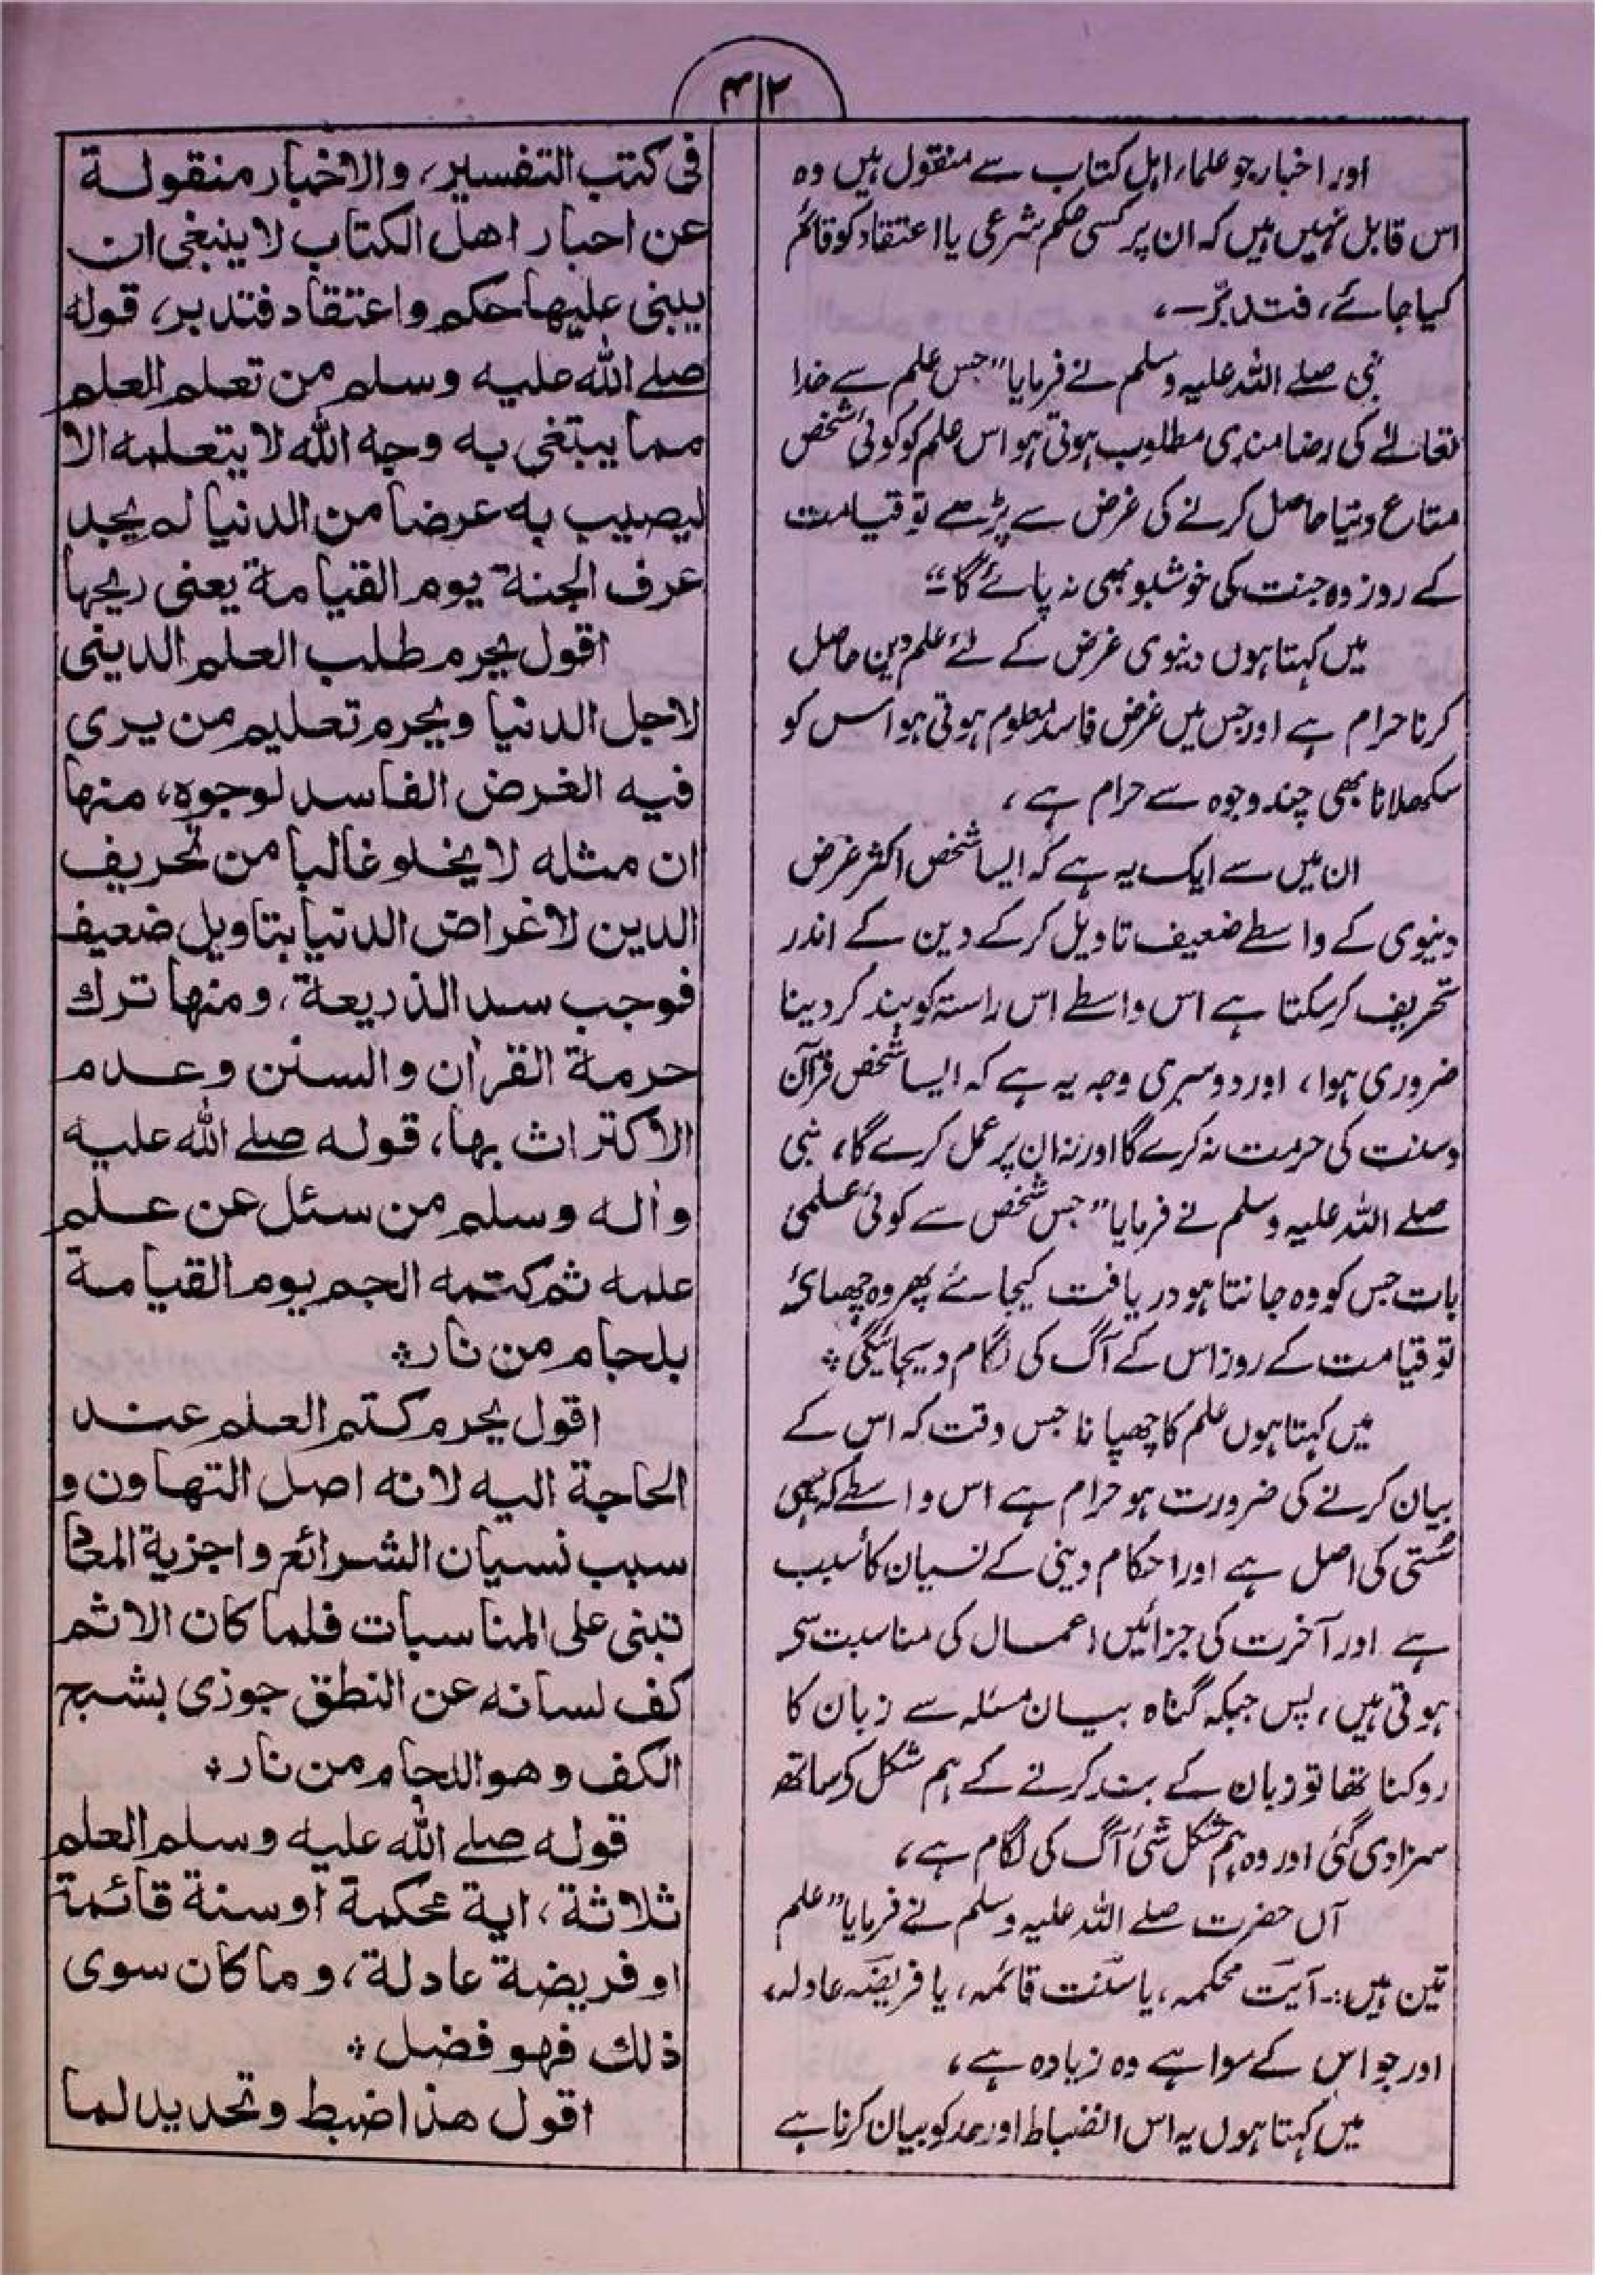 ۴۱۲
اور اخبار جو علماء اہل کتاب سے منقول ہیں وہ
اس قابل نہیں ہیں کہ ان پر کسی حکم شرعی یا اعتقاد کو قائم
کیا جائے، فتدبّر۔،
نبی صلے اللہ علیہ وسلم نے فرمایا "جس علم سے خدا
تعالےٰ کی رضامندی مطلوب ہوتی ہو اس علم کو کوئی شخص
متاع دنیا حاصل کرنے کی غرض سے پڑھے تو قیامت
کے روز وہ جنت کی خوشبو بھی نہ پائے گا"
میں کہتا ہوں دنیوی غرض کے لئے علم دین حاصل
کرنا حرام ہے اور جس میں غرض فاسد معلوم ہوتی ہو اس کو
سکھلانا بھی چند وجوہ سے حرام ہے،
ان میں سے ایک یہ ہے کہ ایسا شخص اکثر غرض
دنیوی کے واسطے ضعیف تاویل کرکے دین کے اندر
تحریف کرسکتا ہے اس واسطے اس راستہ کو بند کر دینا
ضروری ہوا، اور دوسری وجہ یہ ہے کہ ایسا شخص قرآن
وسنت کی حرمت نہ کرے گا اور نہ ان پر عمل کرے گا، نبی
صلے اللہ علیہ وسلم نے فرمایا "جس شخص سے کوئی علمی
بات جس کو وہ جانتا ہو دریافت کیجائے پھر وہ چھپائے
تو قیامت کے روز اس کے آگ کی لگام دیجائیگی ÷
میں کہتا ہوں علم کا چھپانا جس وقت کہ اس کے
بیان کرنے کی ضرورت ہو حرام ہے اس واسطے کہ یہی
سُستی کی اصل ہے اور احکام دینی کے نسیان کا سبب
ہے اور آخرت کی جزائیں اعمال کی مناسبت سے
ہوتی ہیں، پس جبکہ گناہ بیان مسئلہ سے زبان کا
روکنا تھا تو زبان کے بند کرنے کے ہم شکل کے ساتھ
سزا دی گئی اور وہ ہم شکل شئی آگ کی لگام ہے،
آں حضرت صلے اللہ علیہ وسلم نے فرمایا "علم
تین ہیں:۔ آیت محکمہ، یا سنت قائمہ، یا فریضہ عادلہ،
اور جو اس کے سوا ہے وہ زیادہ ہے،
میں کہتا ہوں یہ اس انضباط اور حد کو بیان کرنا ہے
فی کتب التفسیر، والاخبار منقولة
عن احبار اهل الکتاب لا ینبغی ان
یبنی علیها حکم واعتقاد فتدبر، قوله
صلے الله علیه وسلم من تعلم العلم
مما یبتغی به وجه الله لا یتعلمه الا
لیصیب به عرضا من الدنیا لم یجد
عرف الجنة یوم القیامة یعنی ریحها
اقول یحرم طلب العلم الدینی
لاجل الدنیا ویحرم تعلیم من یری
فیه الغرض الفاسد لوجوه، منها
ان مثله لا یخلو غالبا من تحریف
الدین لاغراض الدنیا بتاویل ضعیف
فوجب سد الذریعة، ومنها ترك
حرمة القرآن والسنن وعدم
الاکتراث بها، قوله صلے الله علیه
وآله وسلم من سئل عن علم
علمه ثم کتمه الجم یوم القیامة
بلجام من نار÷
اقول یحرم کتم العلم عند
الحاجة الیه لانه اصل التهاون و
سبب نسیان الشرائع واجزیة المعاد
تبنی علی المناسبات فلما کان الاثم
کف لسانه عن النطق جوزی بشبح
الکف وهو اللجام من نار÷
قوله صلے الله علیه وسلم العلم
ثلاثة، ایة محکمة او سنة قائمة
او فریضة عادلة، وما کان سوی
ذلك فهو فضل ÷
اقول هذا ضبط وتحدید لما